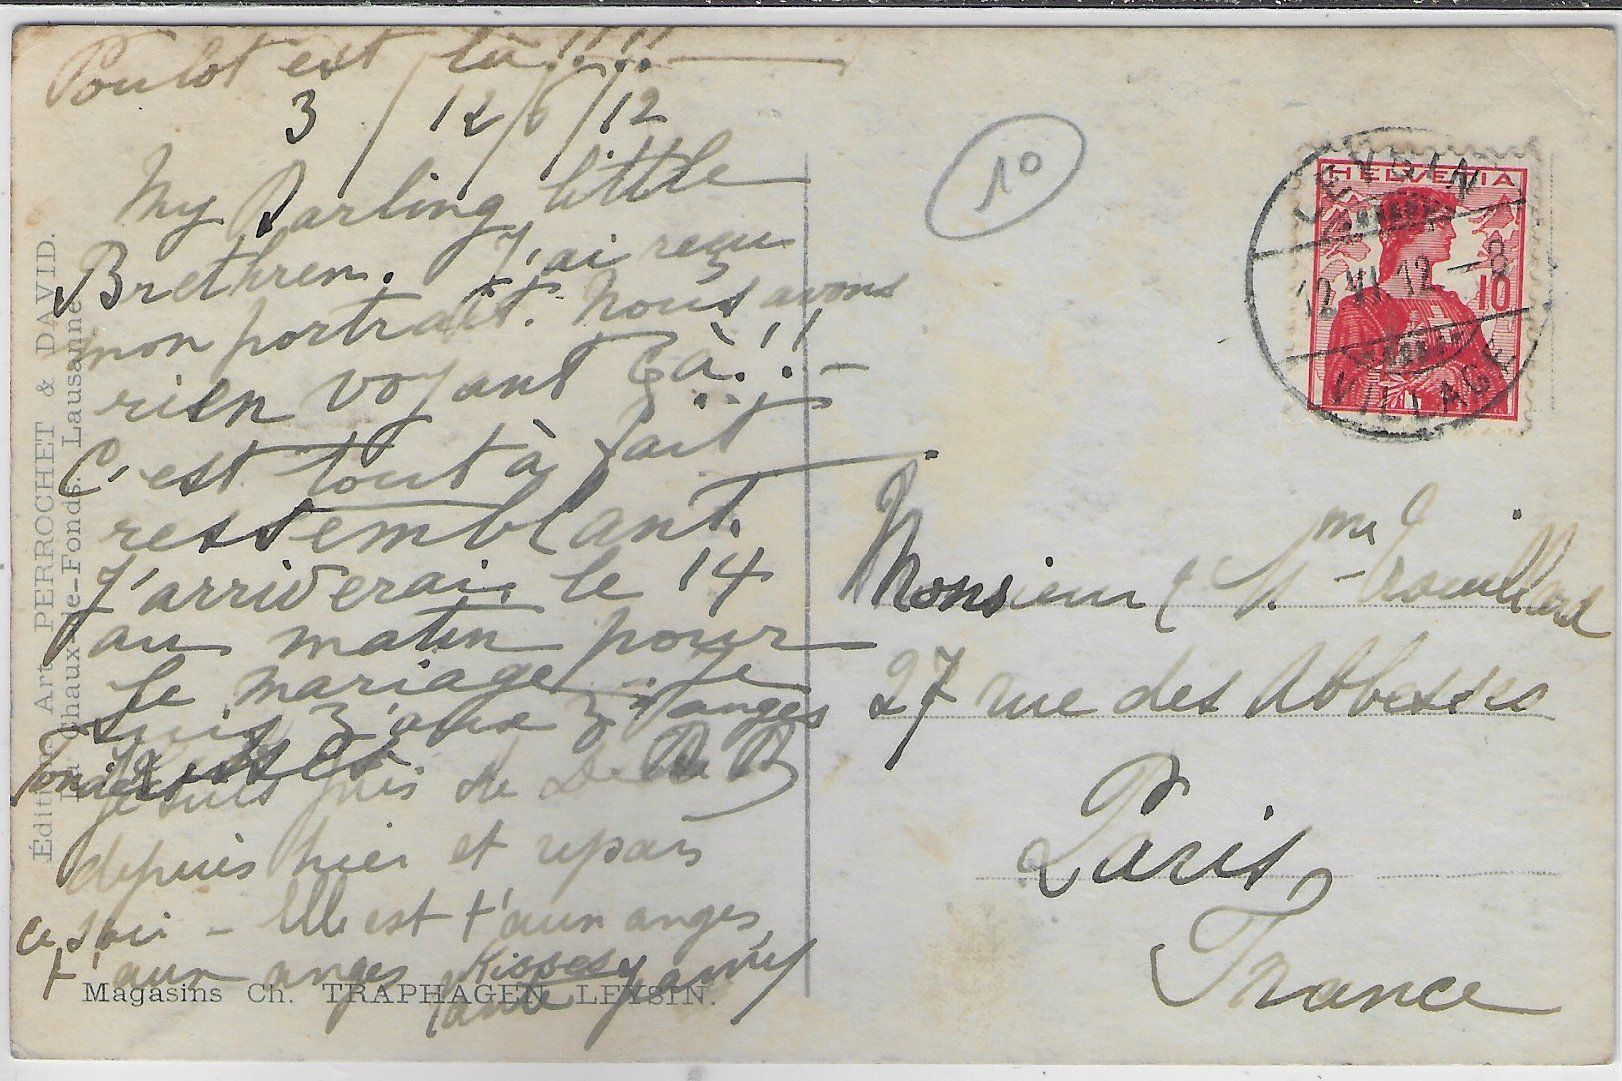 Poulot est là!!!!
3 / 12/6/12
My Darling little
Brethren. J'ai reçu
mon portrait. Nous avons
rien voyant Çà!!
C'est tout à fait
ressemblant.
J'arriverai le 14
au matin pour
le mariage. Je
suis z'aux z'anges
Kisses
je suis près de
depuis hier et repars
ce soir – Elle est t'aux anges,
t'aux anges Kisses
Magasins Ch. TRAPHAGEN LEYSIN.
Édition Art. PERROCHET & DAVID.
La Chaux-de-Fonds. Lausanne
10
HELVETIA
10
LEYSIN
12.VI.12.–8
VILLAGE
Monsieur & Mme Trouillard
27 rue des Abbesses
Paris
France